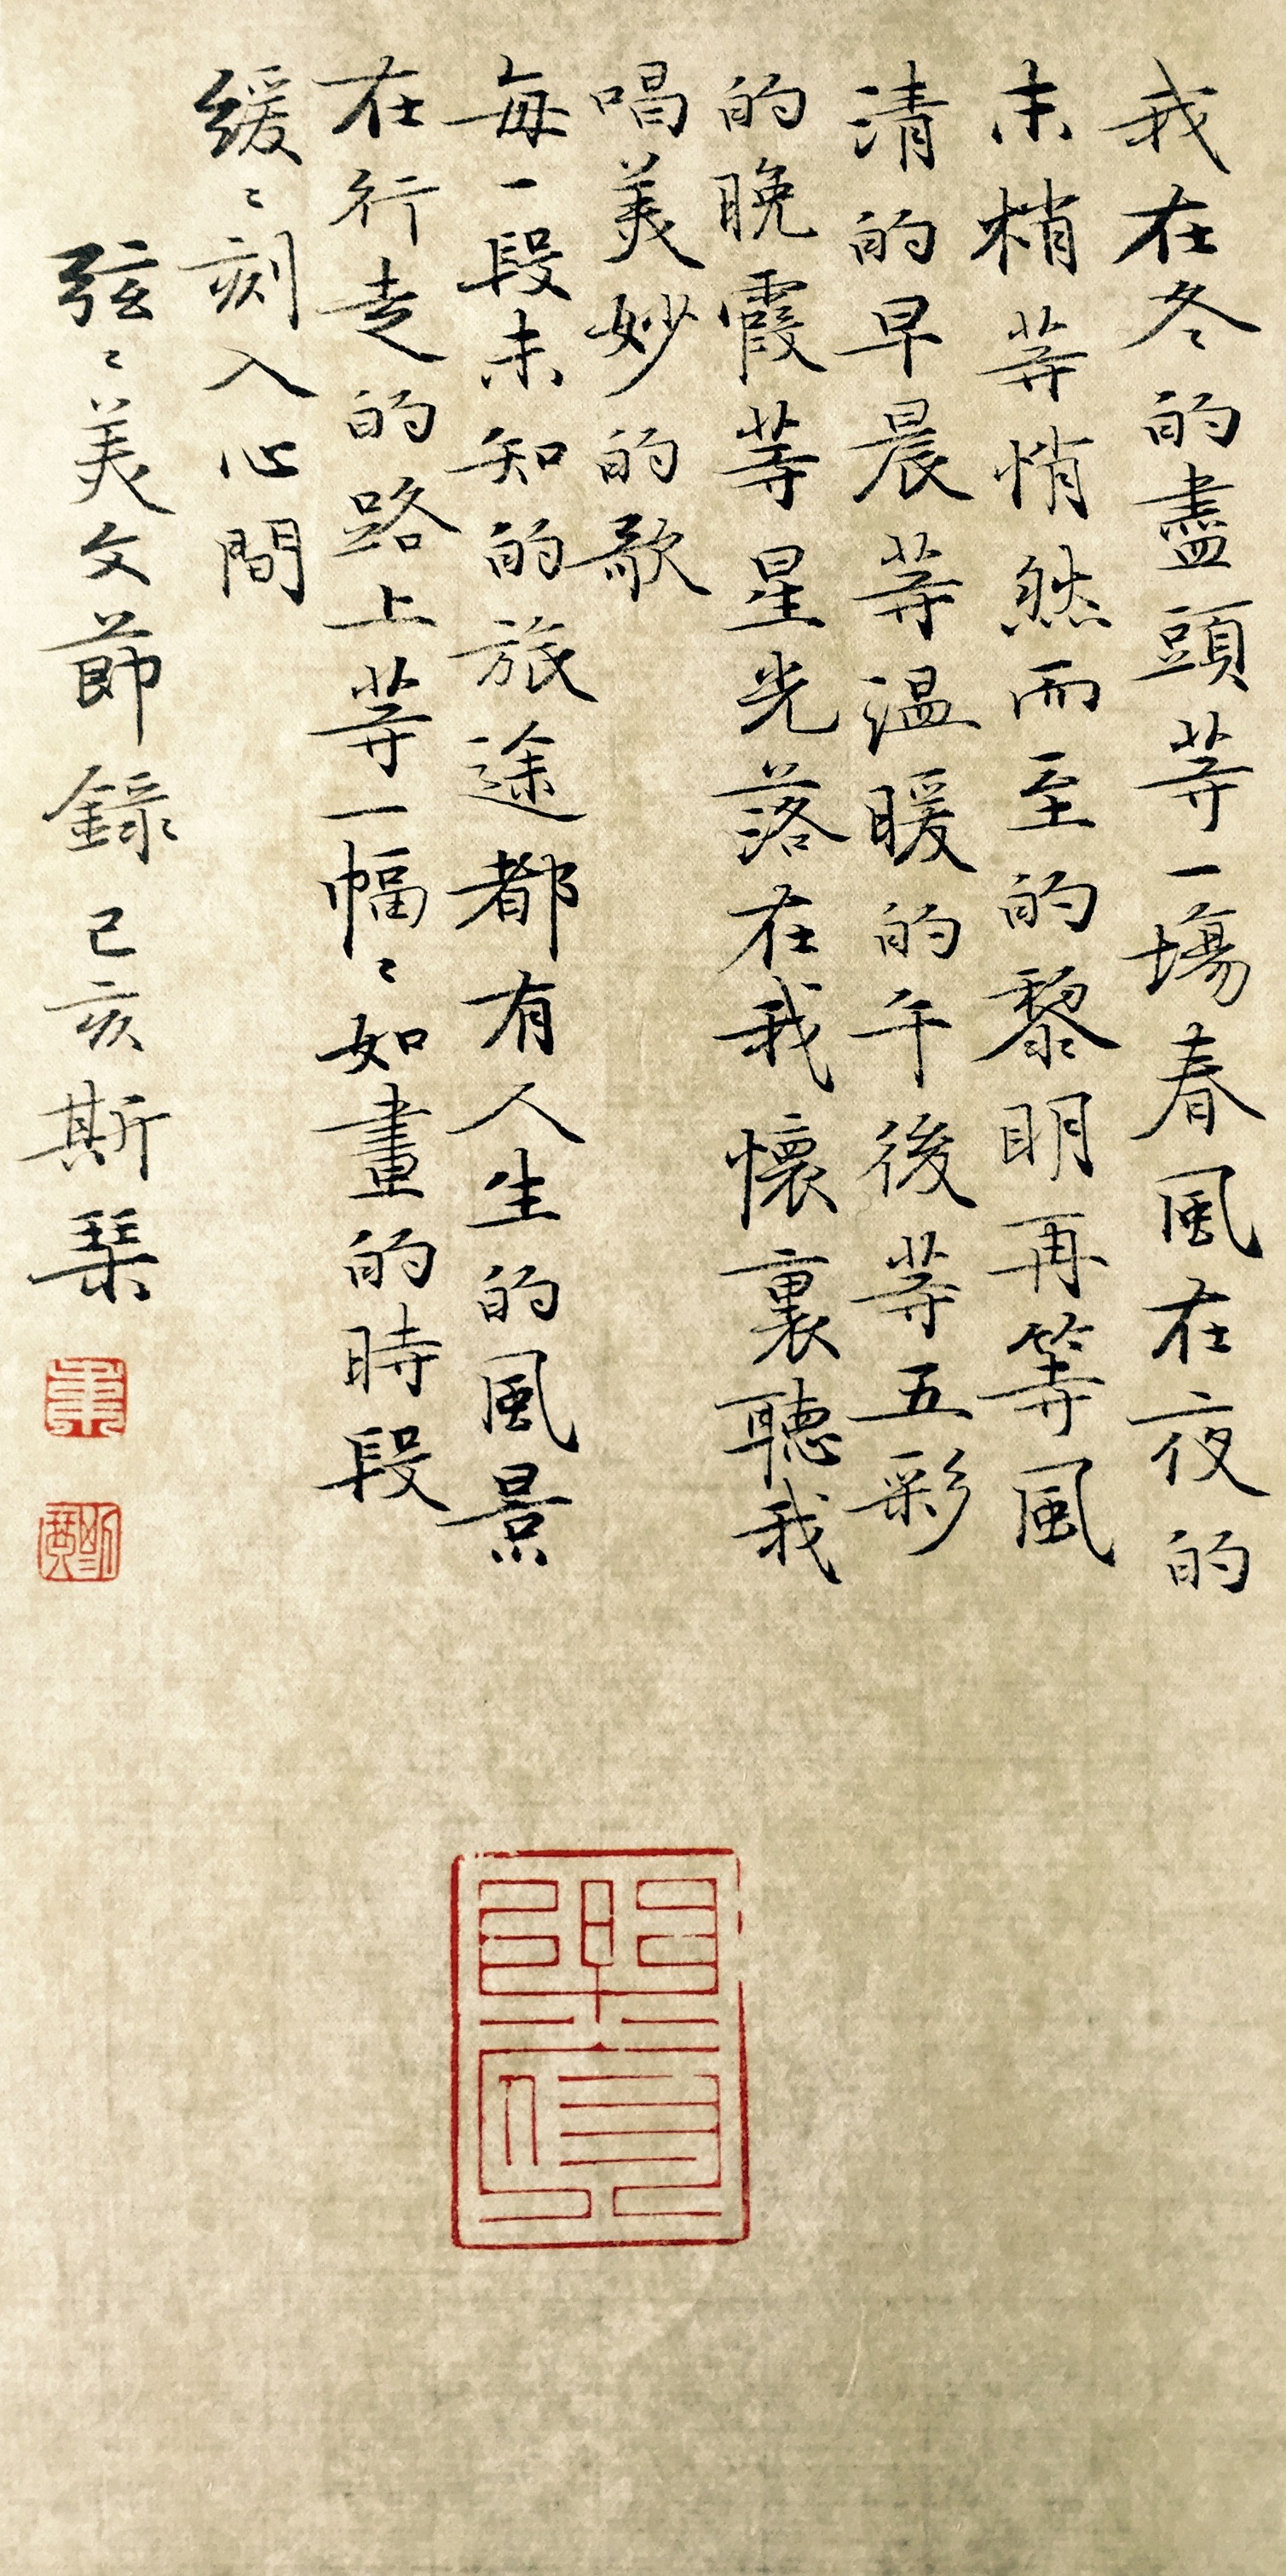 我在冬的盡頭等一場春風在夜的
末梢等悄然而至的黎明再等風
清的早晨等温暖的午後等五彩
的晚霞等星光落在我懷裏聽我
唱美妙的歌
每一段未知的旅途都有人生的風景
在行走的路上等一幅〻如畫的時段
緩〻刻入心間
弦〻美文節録 己亥斯琹